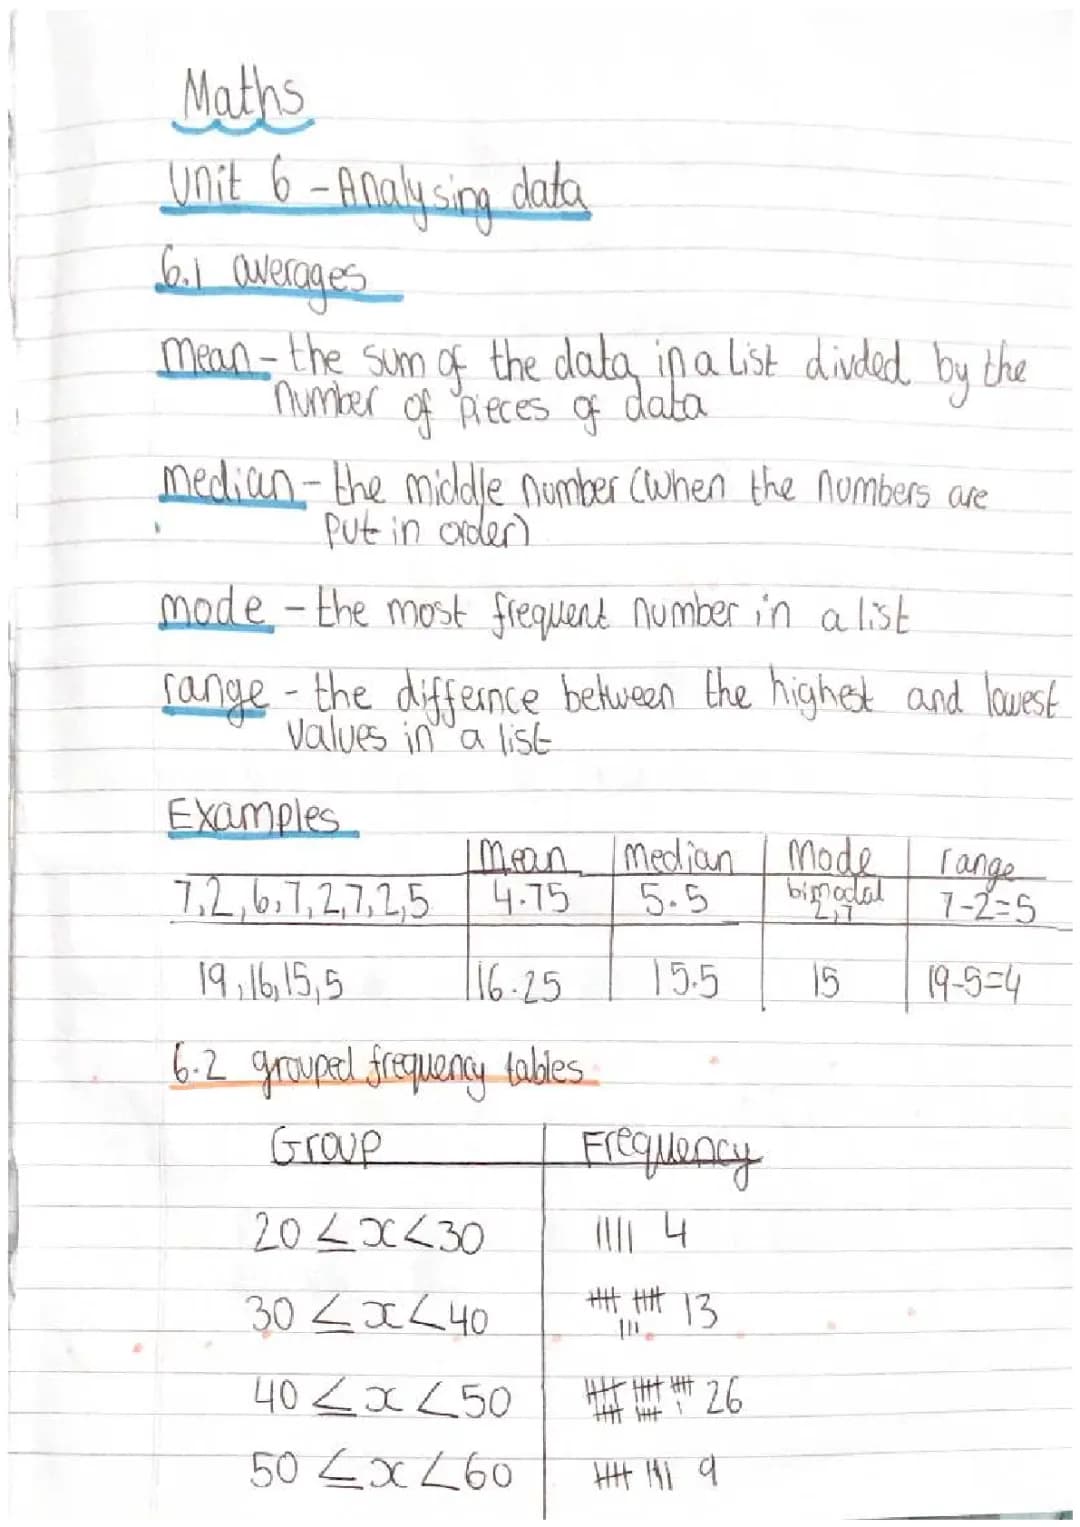 Maths
Unit 6 - Analysing data
6.1 averages
mean - the sum of the data in a list divded by the
number of pieces of data
median - the middle number (when the numbers are
put in order)
mode - the most frequent number in a list
range - the differnce between the highest and lowest
values in a list
Examples
Mean Median Mode range
7,2,6,7,2,7,2,5 4.75 5.5 bimodal 2,7 7-2=5
19,16,15,5 16.25 15.5 15 19-5=4
6.2 grouped frequency tables
Group Frequency
20 ≤ x < 30 4
30 ≤ x < 40 13
40 ≤ x < 50 26
50 ≤ x < 60 9